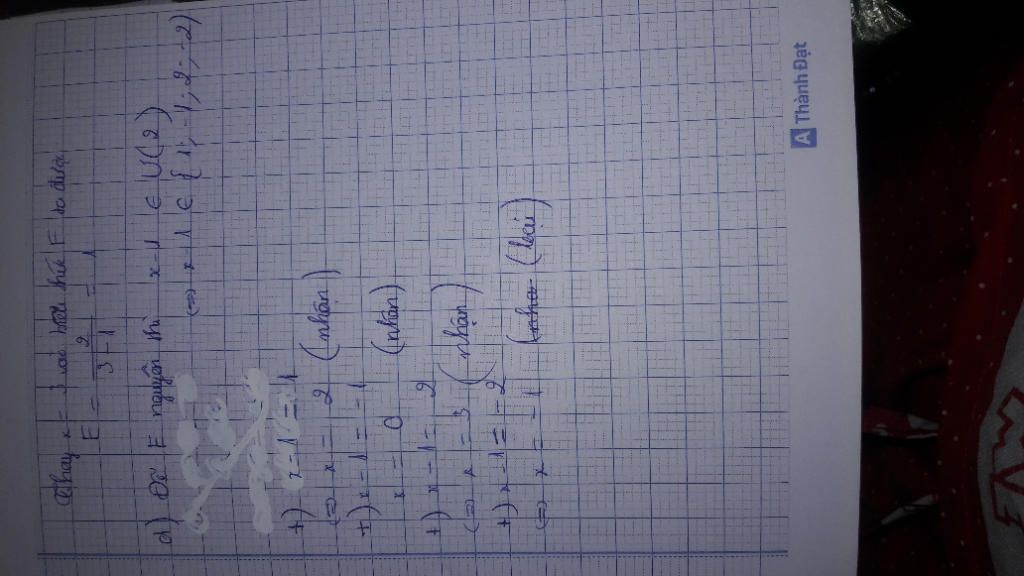 Thay x = 3 vào biểu thức E ta được
E = 2/(3-1) = 1
d) Để E nguyên thì x-1 ∈ Ư(2)
(=> x-1 ∈ {1; -1; 2; -2}
+) x-1 = 1
(=> x = 2 (nhận)
+) x-1 = -1
x = 0 (nhận)
+) x-1 = 2
(=> x = 3 (nhận)
+) x-1 = -2
(=> x = -1 (loại)
A Thành Đạt